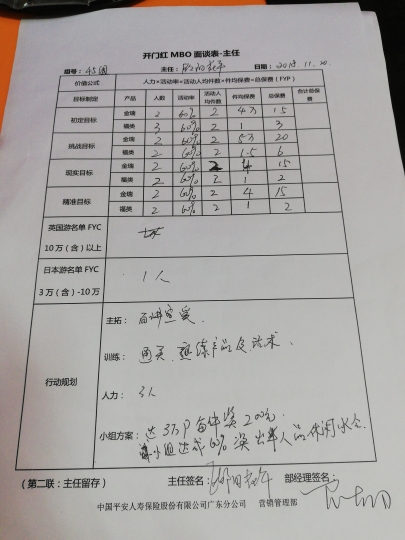 开门红 MBO 面谈表-主任
组号： 45 主任： 日期： 2015.11.20
价值公式 人力×活动率×活动人均件数×件均保费=总保费（FYP）
目标制定 产品 人数 活动率 活动人均件数 件均保费 总保费 合计总保费
初定目标 金瑞 2 60% 2 4万 15
福英 3 60% 2 1 3
挑战目标 金瑞 2 60% 2 5万 20
福英 2 60% 2 1.5 6
现实目标 金瑞 2 60% 2 4 15
福英 2 60% 2 1 2
精准目标 金瑞 2 60% 2 4 15
福英 2 60% 2 1 2
英国游名单 FYC
10 万（含）以上
日本游名单 FYC
3 万（含）-10 万
1人
行动规划
主拓：
训练： 通关，熟练产品及话术.
人力： 3人
小组方案： 达3万P 每件奖200元.
小组达成60%奖
（第二联：主任留存） 主任签名： 部经理签名：
中国平安人寿保险股份有限公司广东分公司 营销管理部